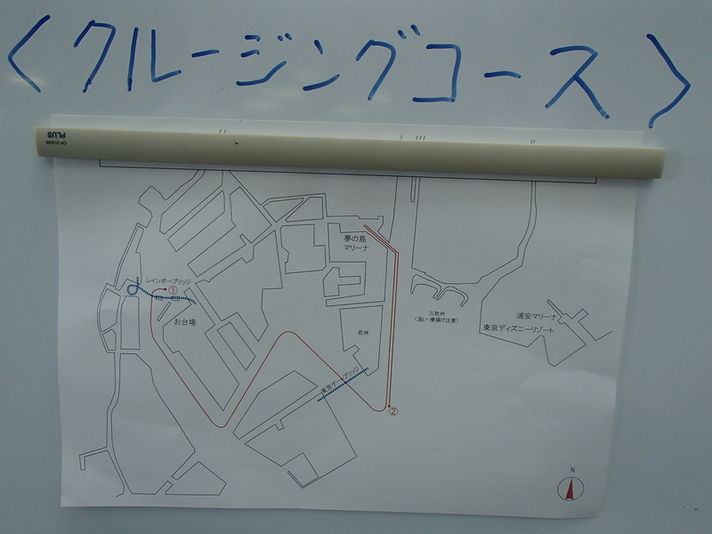 <クルージングコース>
PLUS
夢の島
マリーナ
レインボーブリッジ
①
お台場
若洲
三枚洲
(浅い・乗揚げ注意)
浦安マリーナ
東京ディズニーリゾート
東京ゲートブリッジ
②
N